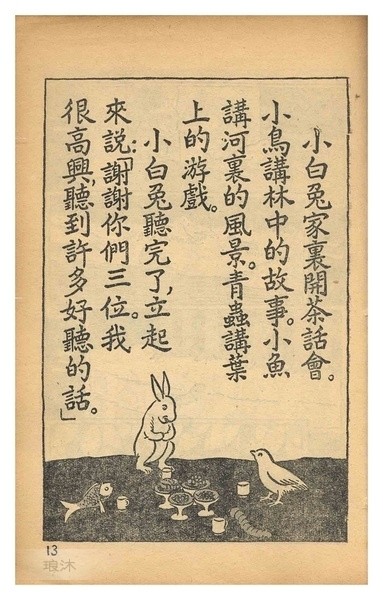 小白兔家裏開茶話會。
小鳥講林中的故事。小魚
講河裏的風景。青蟲講葉
上的游戲。
小白兔聽完了，立起
來說：「謝謝你們三位。我
很高興，聽到許多好聽的話。」
13
琅沐